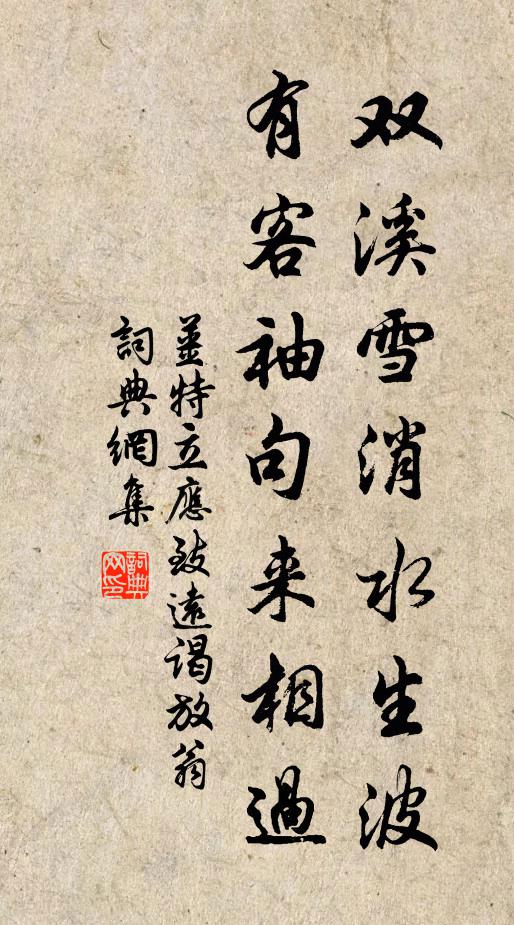 双溪雪消水生波
有客袖句来相過
姜特立應致遠謁放翁
詞典網集
詞典網印